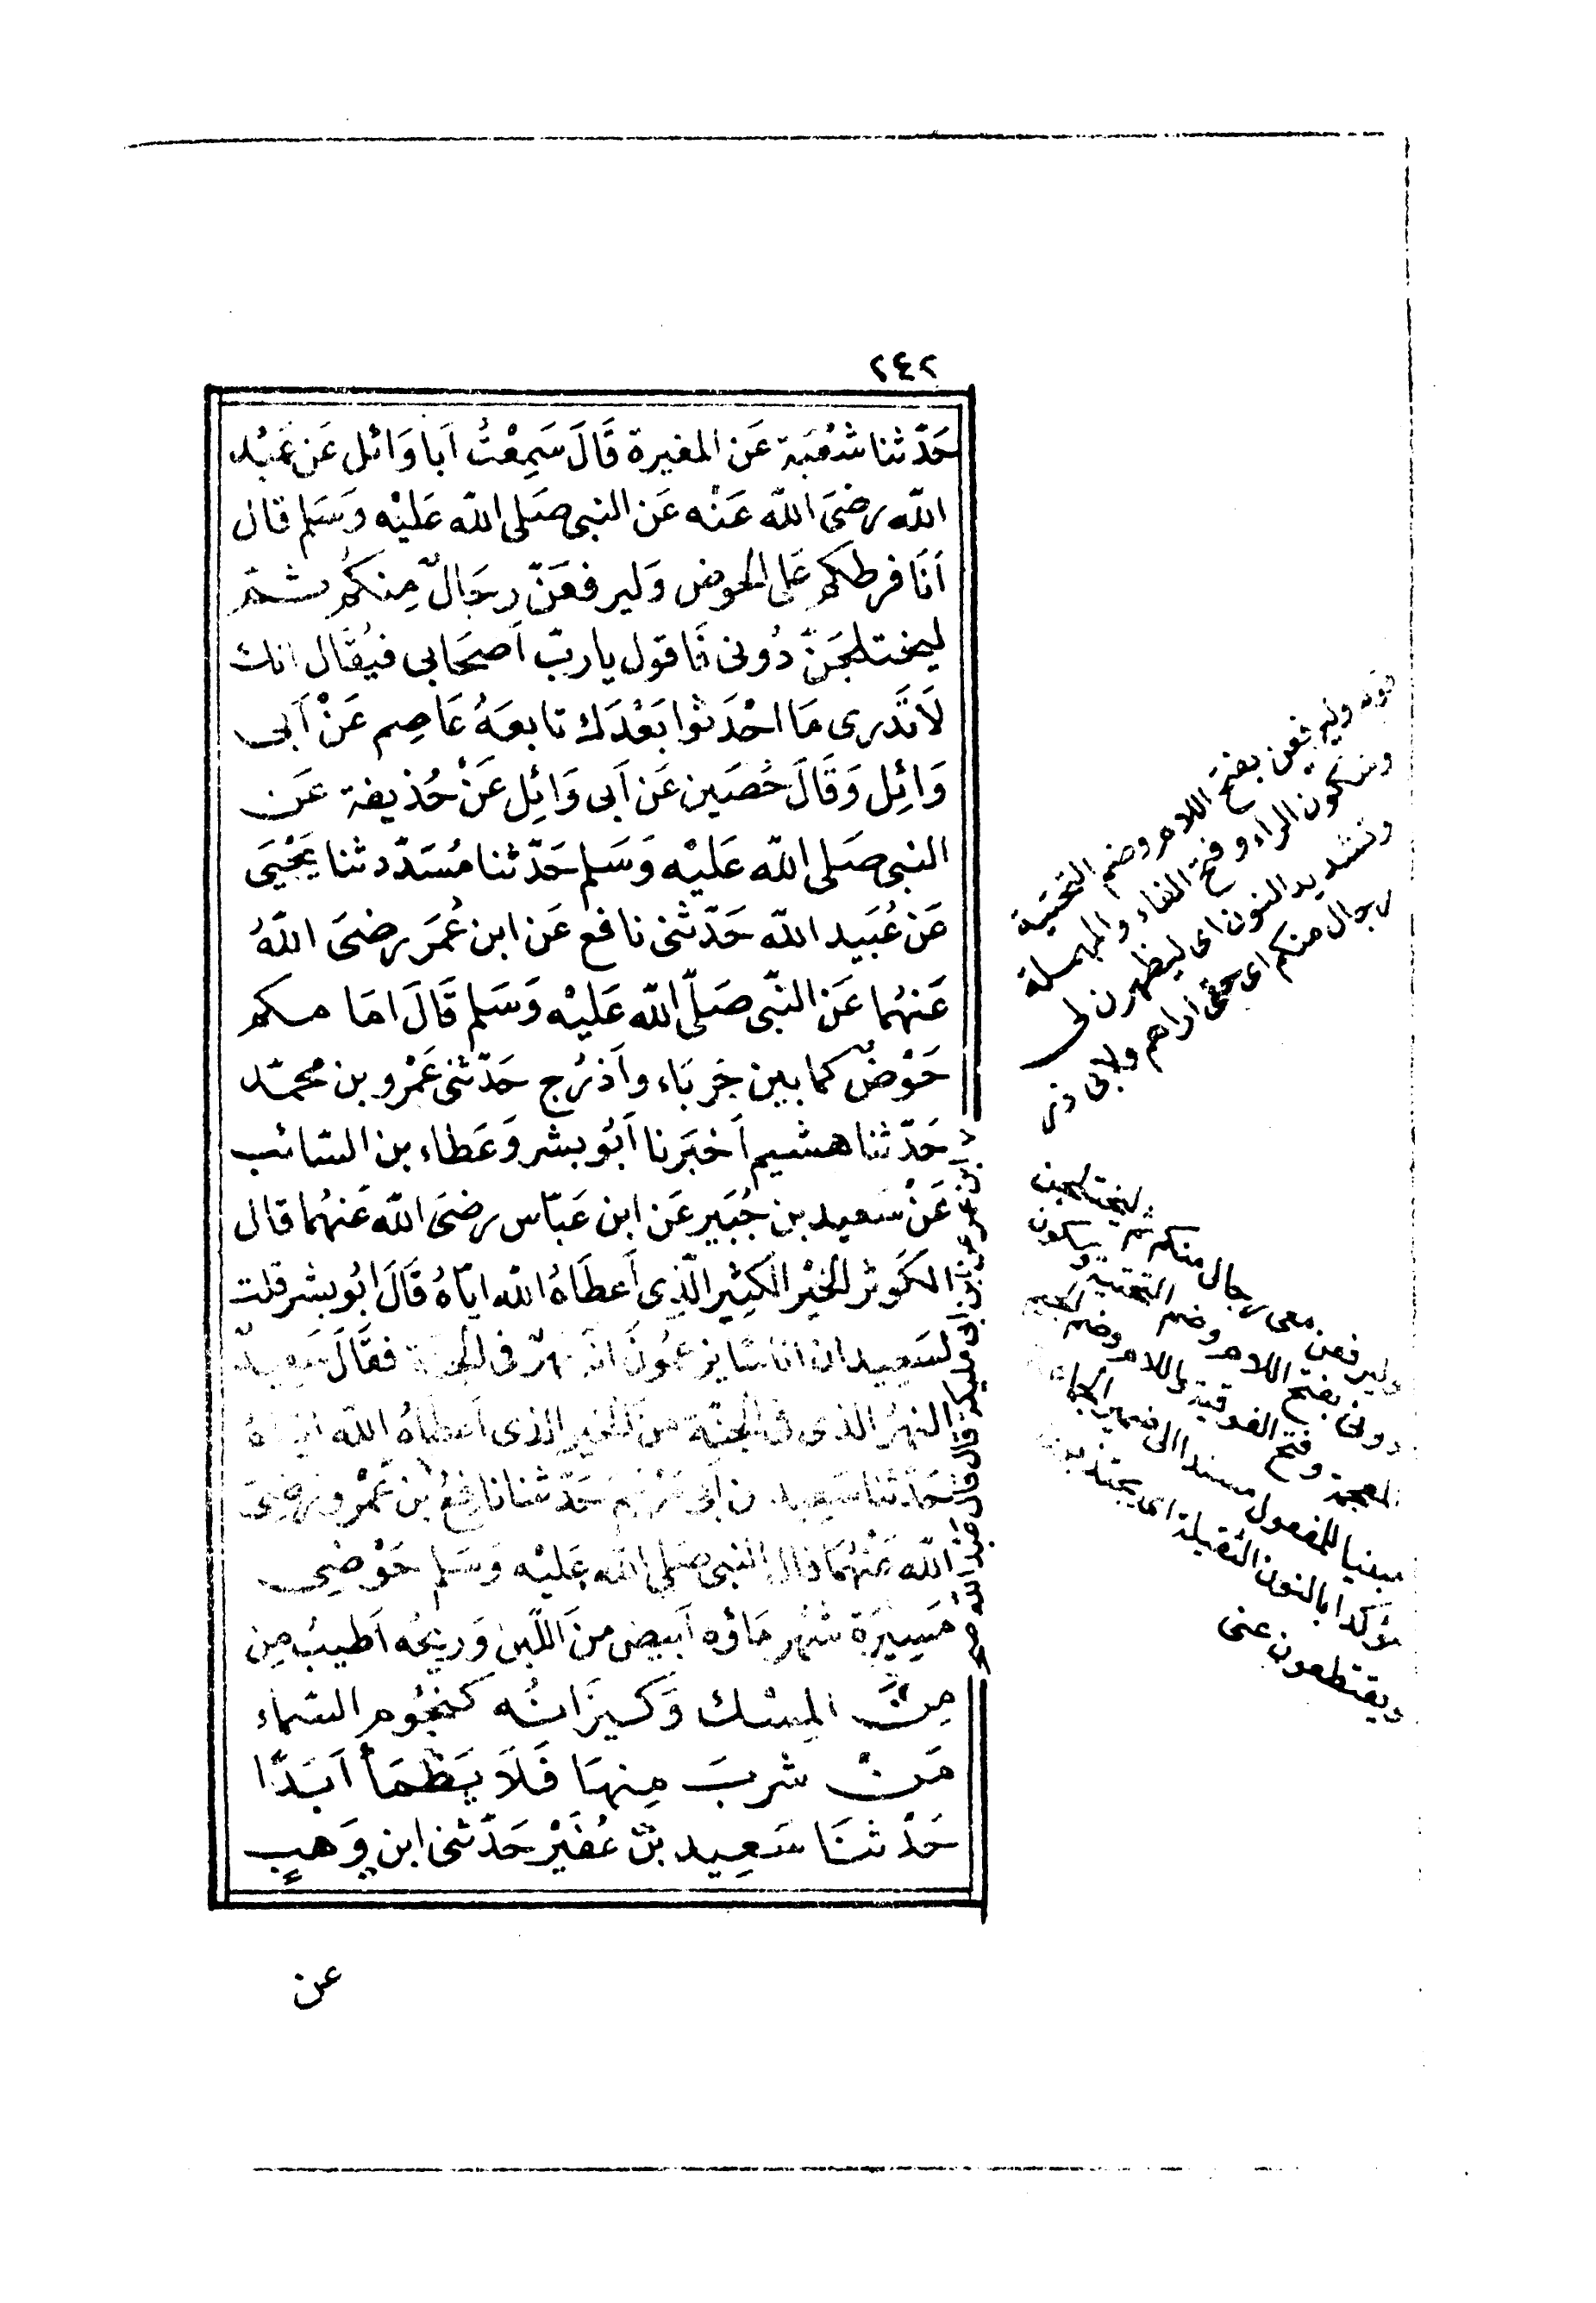 ٢٤٢
حَدّثنا شعْبَة عَن المغيرة قَالَ سَمِعْتُ اَبا وَائل عَن عَبْد
الله رضىَ الله عَنْه عَن النبى صَلى الله عَليْه وَسَلم قال
اَنَا فرطكم عَلى الحوض وَليرفعَنّ رِجَالٌ مِنكُم ثم
ليختلجَنّ دُونى فَاقول يا ربّ اَصحَابى فيُقَال انك
لَا تَدرى مَا احْدَثوا بَعْدَك تابعَهُ عَاصِم عَنْ اَبى
وَائِل وَقَالَ حُصَين عَن اَبى وَائِل عَنْ حُذيفة عَن
النبى صَلى الله عَليْه وَسَلم حَدّثنا مُسَدّد ثنا يَحْيَى
عَن عُبَيد الله حَدّثنى نافع عَن ابن عُمَر رضىَ اللهُ
عَنهُما عَن النّبى صَلّى الله عَليْه وَسَلم قَالَ امَا مكم
حَوْضٌ كما بين جَربَاء واَذرُج حَدّثنى عَمْرو بن محمّد
حَدّثنا هشيم اَخبَرنا اَبُو بشر وَعَطاء بن السّائب
عَنْ سَعيد بن جُبَير عَن ابن عَبّاس رضىَ الله عَنهُما قال
الكَوثر الخيْر الكثِير الّذِى اَعطَاهُ الله ايّاهُ قَالَ ابُو بشر قلت
لسَعِيد ان اناسًا يزعمُونَ انّه نهرٌ فى الجنة فقَالَ سَعِيدٌ
النهرُ الذى فى الجنّة من الخير الذى اَعطاهُ الله ايّاهُ
حَدّثنا سَعيد بن ابى مَرْيم حَدّثنا نافعُ بن عُمْر ورضىَ
الله عَنْهُما قال النبى صَلى الله عَليْه وَسَلم حَوْضِى
مَسِيرَة شهْر مَاؤه اَبيض منَ اللّبن وَريحُه اَطيبُ مِن
مِنَ المِسْك وَكيزَانُه كنجُوم السّماء
مَنْ شربَ مِنهَا فَلَا يَظمَأ اَبَدًا
حَدّثنَا سَعِيد بنُ عُفَيْر حَدّثنى ابن وَهبٍ
عن
بن عمر عن ابن ابى مليكة قال قال عَبْد الله صح
قوله وليرفعن بفتح اللام وضم التحتية
وسكون الراء وفتح الفاء والمهملة
وتشديد النون اى ليظهرن لى
رجال منكم اى حتى اراهم ولابى ذر
وليرفعن معى رجال منكم ثم ليختلجن
دونى بفتح اللام وضم التحتية وسكون
المعجمة وفتح الفوقية واللام وضم الجيم
مبنيا للمفعول مسندا الى ضمير
مؤكدا بالنون الثقيلة اى يجتذبون
ويقتطعون عنى